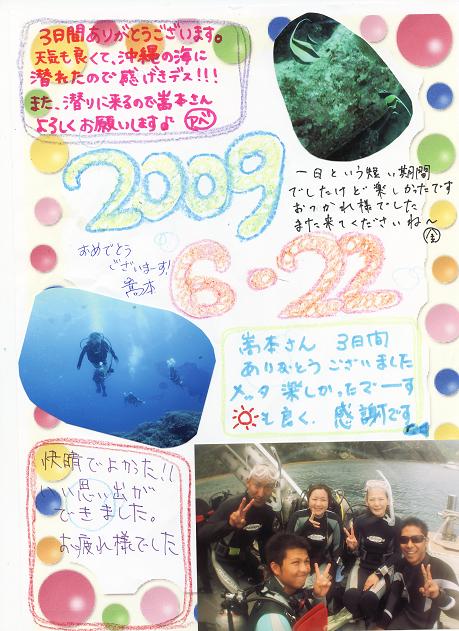 3日間ありがとうございます。
天気も良くて、沖縄の海に
潜れたので感げきデス!!!
また、潜りに来るので嵩本さん
よろしくお願いします♪ アベ
2009
一日という短い期間
でしたけど楽しかったです
おつかれ様でした
また来てくださいね〜
金
おめでとう
ございます!
嵩本
6・22
嵩本さん 3日間
ありがとうございました
メッチャ楽しかったでーす
も良く、感謝です
快晴でよかった!!
いい思い出が
できました。
お疲れ様でした